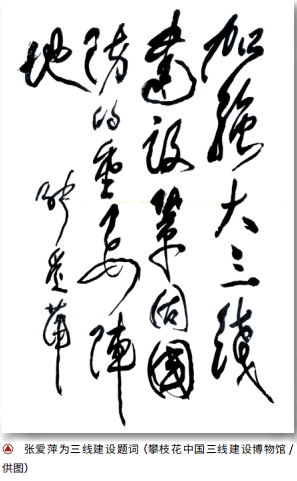 加強大三线
建设鞏固國
防的重要陣
地
张爱萍
张爱萍为三线建设题词（攀枝花中国三线建设博物馆 /
供图）